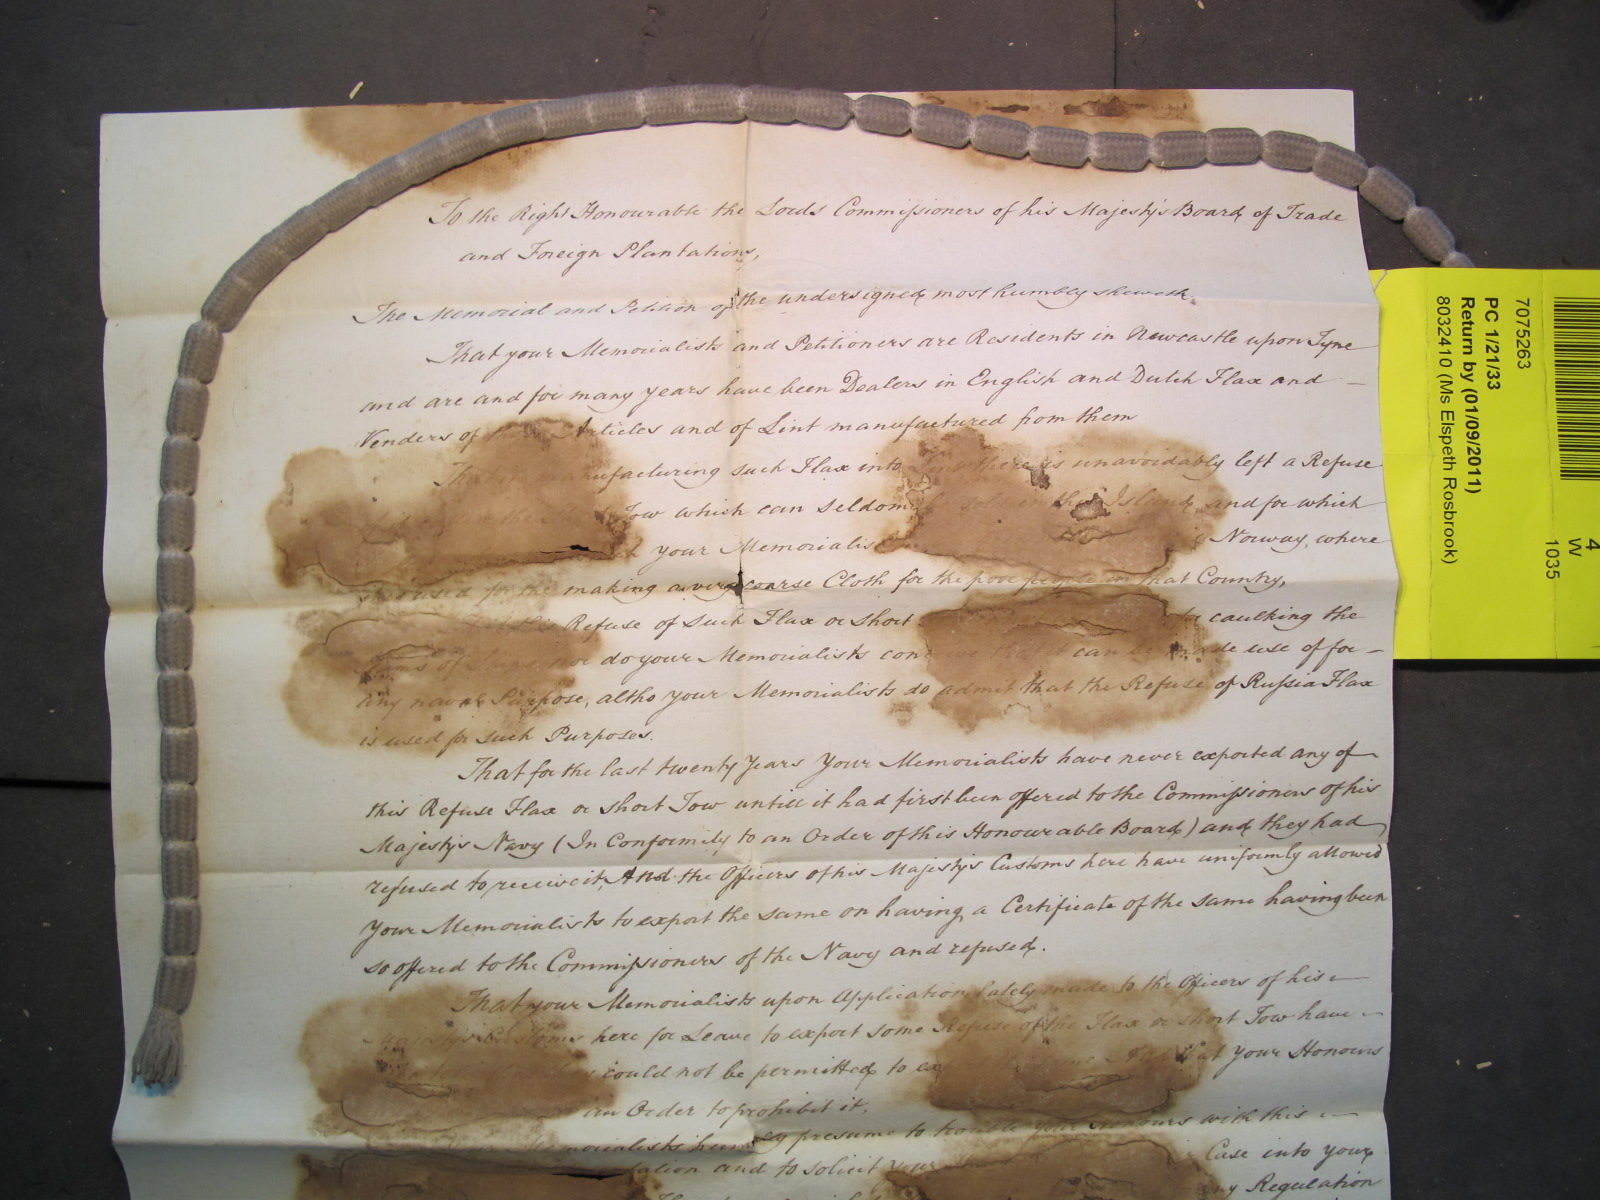 To the Right Honourable the Lords Commissioners of his Majesty's Board of Trade
and Foreign Plantations,
The Memorial and Petition of the undersigned most humbly sheweth.
That your Memorialists and Petitioners are Residents in Newcastle upon Tyne
and are and for many years have been Dealers in English and Dutch Flax and
Venders of these Articles and of Lint manufactured from them
manufacturing such Flax into there is unavoidably left a Refuse
Tow which can seldom be sold in this Island, and for which
your Memorialists Norway, where
used for the making a very coarse Cloth for the poor people in that Country,
this Refuse of such Flax or short caulking the
of nor do your Memorialists conceive that it can be made use of for
any naval Purpose, altho your Memorialists do admit that the Refuse of Russia Flax
is used for such Purposes.
That for the last twenty Years Your Memorialists have never exported any of
this Refuse Flax or short Tow untill it had first been offered to the Commissioners of his
Majesty's Navy (In Conformity to an Order of this Honourable Board) and they had
refused to receive it, And the Officers of his Majesty's Customs here have uniformly allowed
Your Memorialists to export the same on having a Certificate of the same having been
so offered to the Commissioners of the Navy and refused.
That your Memorialists upon Application lately made to the Officers of his
Majesty's Customs here for Leave to export some Refuse of the Flax or short Tow have
could not be permitted to that Your Honours
an Order to prohibit it.
Memorialists humbly presume to trouble your Honours with this
and to solicit your Case into your
any Regulation
4
W
1035
7075263
PC 1/21/33
Return by (01/09/2011)
8032410 (Ms Elspeth Rosbrook)